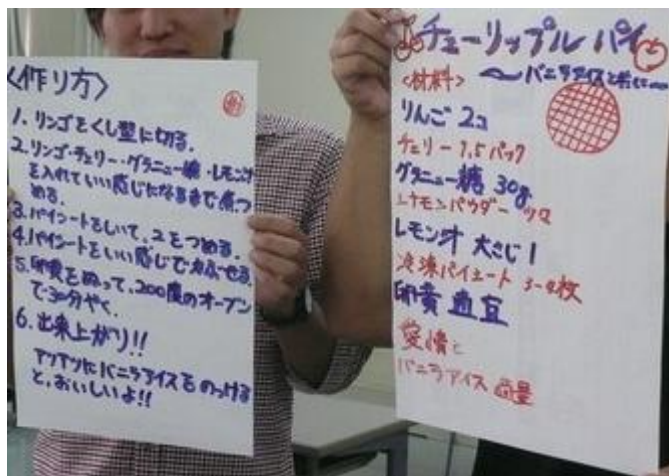 〈作り方〉
1. リンゴをくし型に切る.
2. リンゴ・チェリー・グラニュー糖・レモン汁
を入れていい感じになるまで煮つ
める.
3. パイシートをしいて、2をつめる.
4. パイシートをいい感じでかぶせる.
5. 卵黄をぬって、200度のオーブン
で30分やく.
6. 出来上がり!!
アツアツにバニラアイスをのっける
と、おいしいよ!!
チェーリップル パイ
〜バニラアイスと共に〜
<材料>
りんご 2コ
チェリー 1.5パック
グラニュー糖 30g.
シナモンパウダー
レモン汁 大さじ1
冷凍パイシート 3~4枚
卵黄 適宜
愛情と
バニラアイス 適量